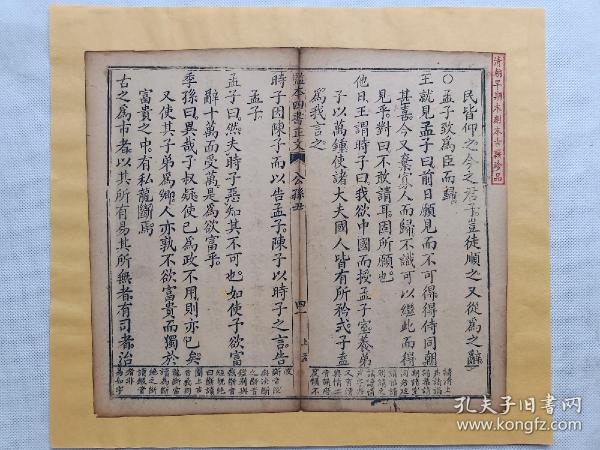 清朝早期木刻本古籍珍品
民皆仰之今之君子豈徒順之又從為之辭
○孟子致為臣而歸
王就見孟子曰前日願見而不可得得侍同朝
甚喜今又棄寡人而歸不識可以繼此而得
見乎對曰不敢請耳固所願也
他日王謂時子曰我欲中國而授孟子室養弟
子以萬鍾使諸大夫國人皆有所矜式子盍
為我言之
監本四書正文 公孫丑 四一
時子因陳子而以告孟子陳子以時子之言告
孟子
孟子曰然夫時子惡知其不可也如使予欲富
辭十萬而受萬是為欲富乎
季孫曰異哉子叔疑使己為政不用則亦已矣
又使其子弟為卿人亦孰不欲富貴而獨於
富貴之中有私龍斷焉
古之為市者以其所有易其所無者有司者治
孔夫子旧书网
www.kongfz.com